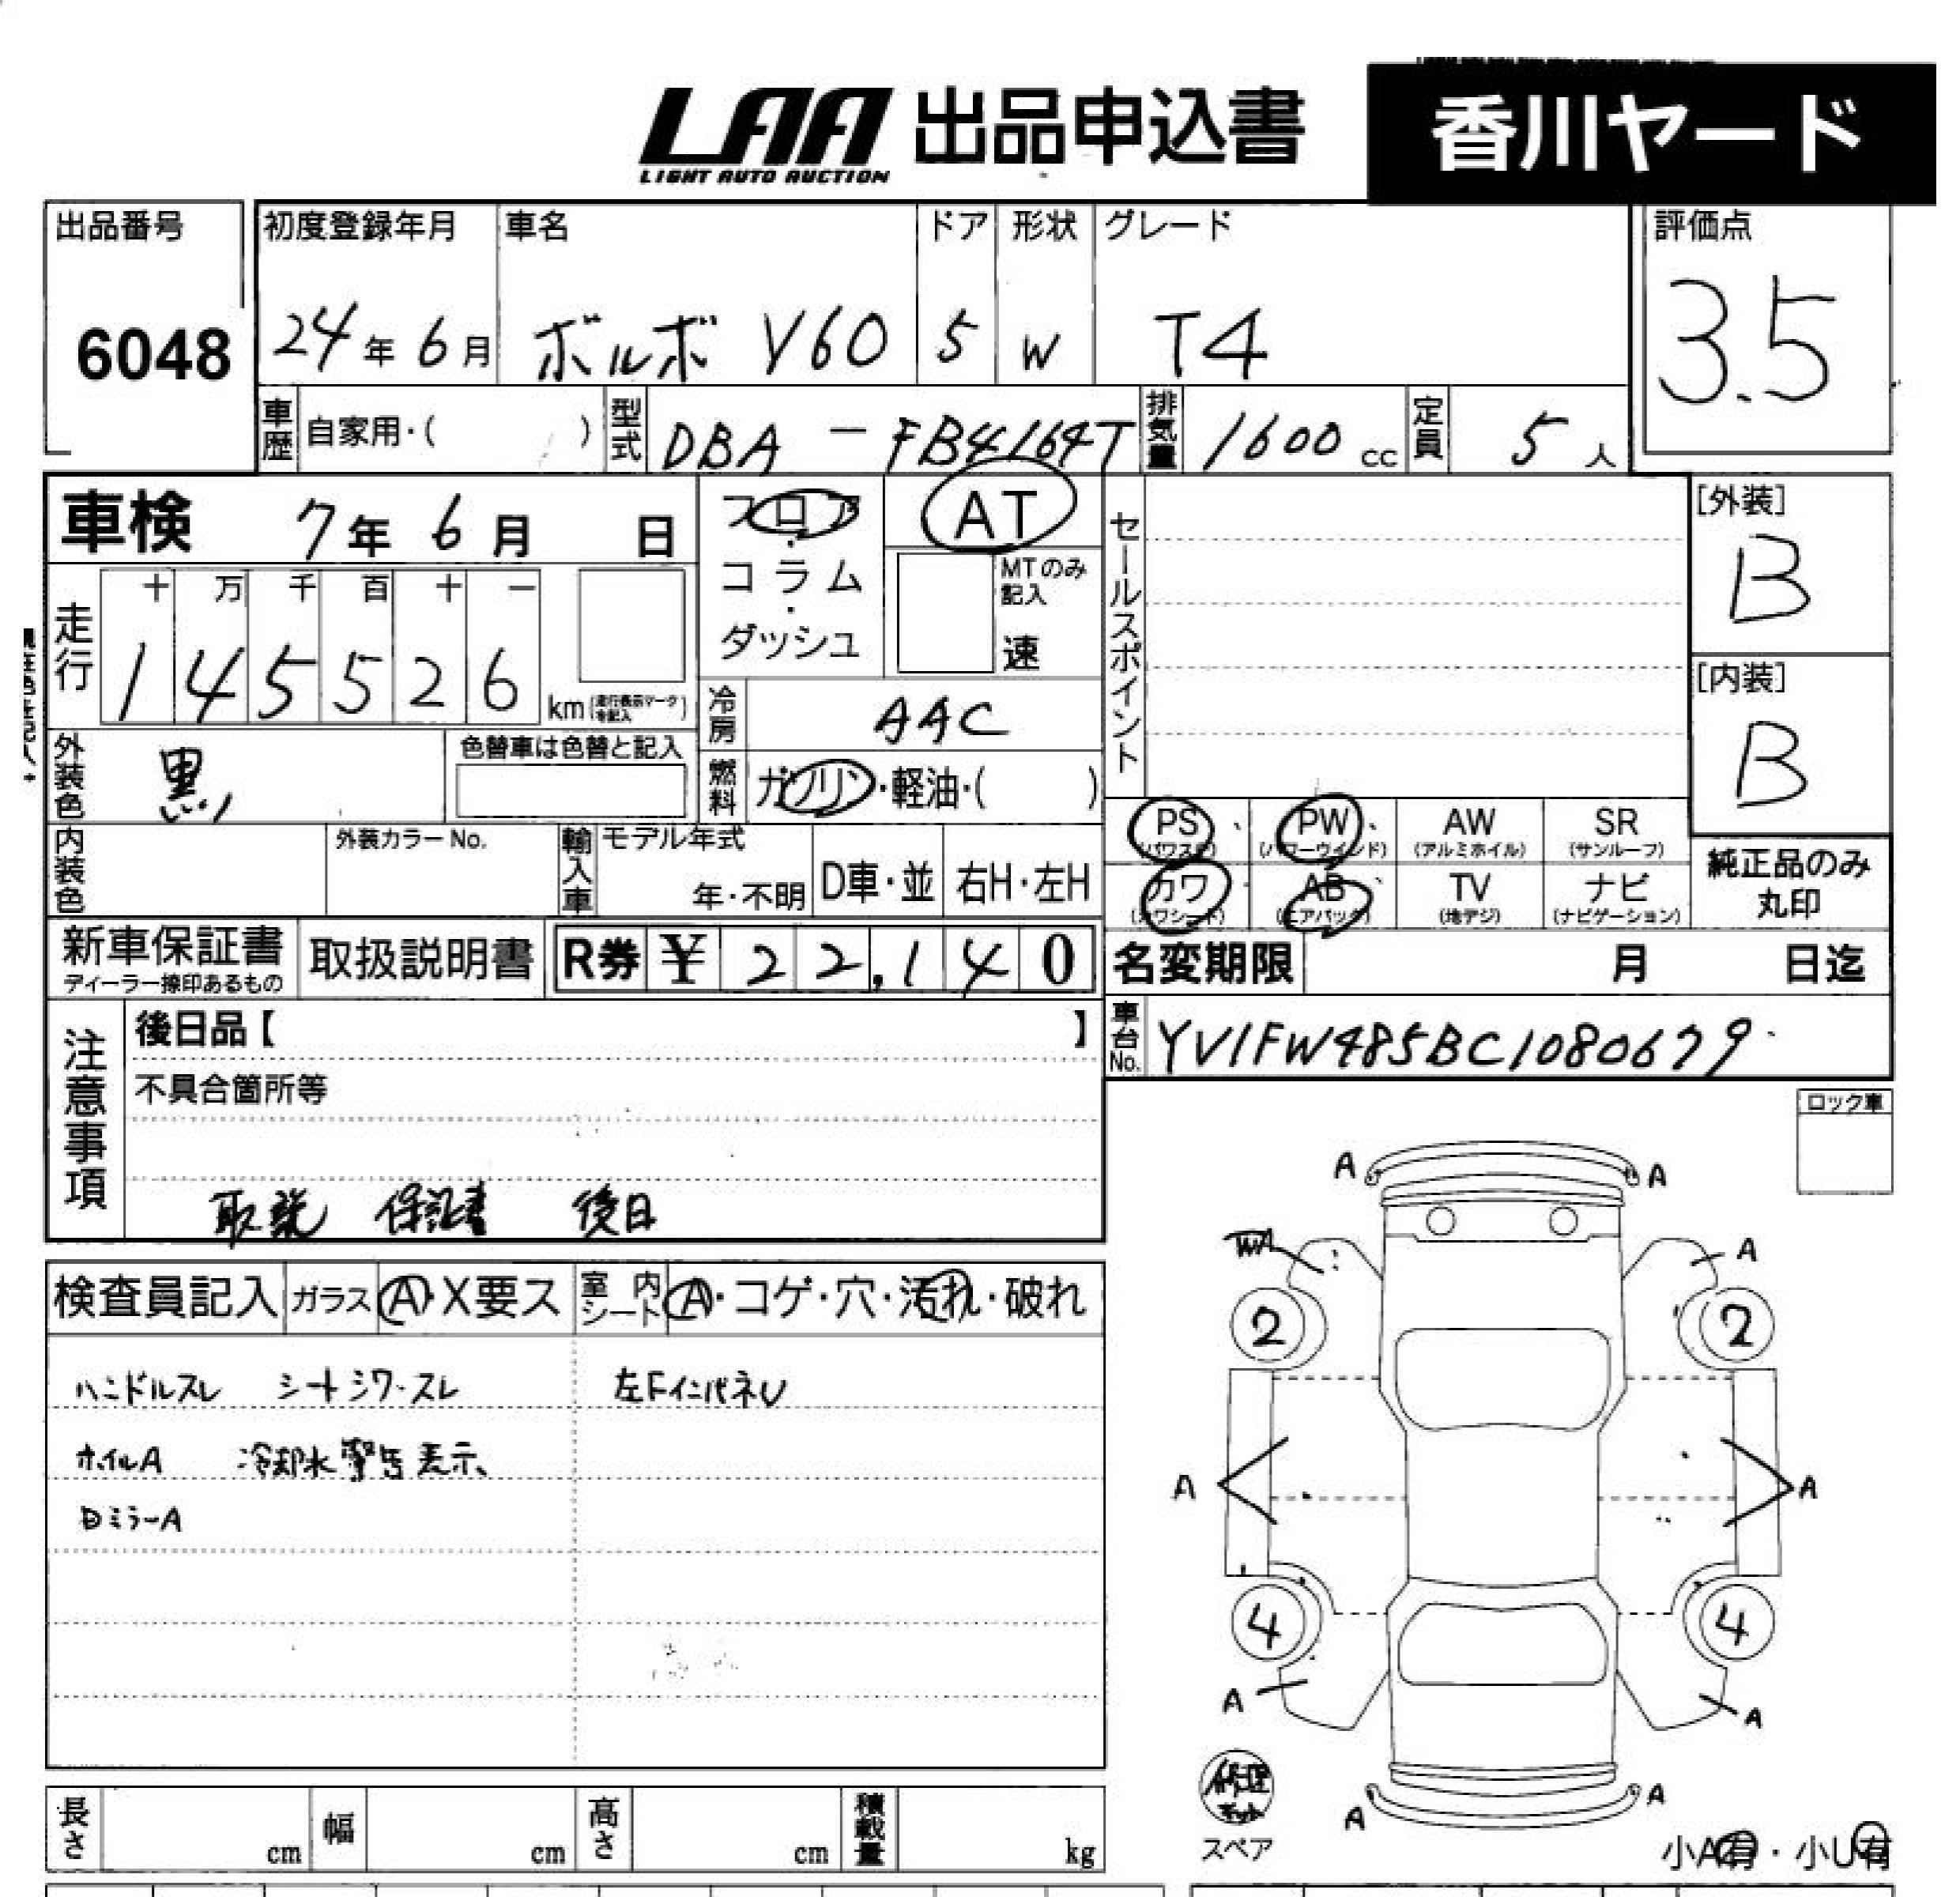 LAA 出品申込書 香川ヤード
LIGHT AUTO AUCTION
出品番号 初度登録年月 車名 ドア 形状 グレード 評価点
6048 24年6月 ボルボ V60 5 W T4 3.5
車歴 自家用・( ) 型式 DBA-FB4164T 排気量 1600cc 定員 5人
車検 7年6月 日 フロア・コラム・ダッシュ AT セールスポイント [外装]
B
MTのみ記入 速
走行 十 万 千 百 十 一
1 4 5 5 2 6 km (走行表示マークを記入)
[内装]
B
冷房 AAC
外装色 黒 色替車は色替と記入
燃料 ガソリン・軽油・( )
PS (パワステ) PW (パワーウインド) AW (アルミホイル) SR (サンルーフ)
内装色 外装カラーNo. 輸入車 モデル年式 年・不明 D車・並 右H・左H
カワ (カワシート) AB (エアバック) TV (地デジ) ナビ (ナビゲーション) 純正品のみ丸印
新車保証書 ディーラー捺印あるもの 取扱説明書 R券 ¥ 2 2,1 4 0 名変期限 月 日迄
注意事項 後日品【 】
車台No. YV1FW485BC1080679
不具合箇所等
取説 保証書 後日
ロック車
検査員記入 ガラス A・X要ス 室内シート A・コゲ・穴・汚れ・破れ
ハンドルスレ シートシワ・スレ 左FインパネU
ホイルA 冷却水警告表示、
DミラーA
A A
A
2 2
A A
4 4
A A
修理キット
スペア
A A
小A有・小U有
長さ cm 幅 cm 高さ cm 積載量 kg